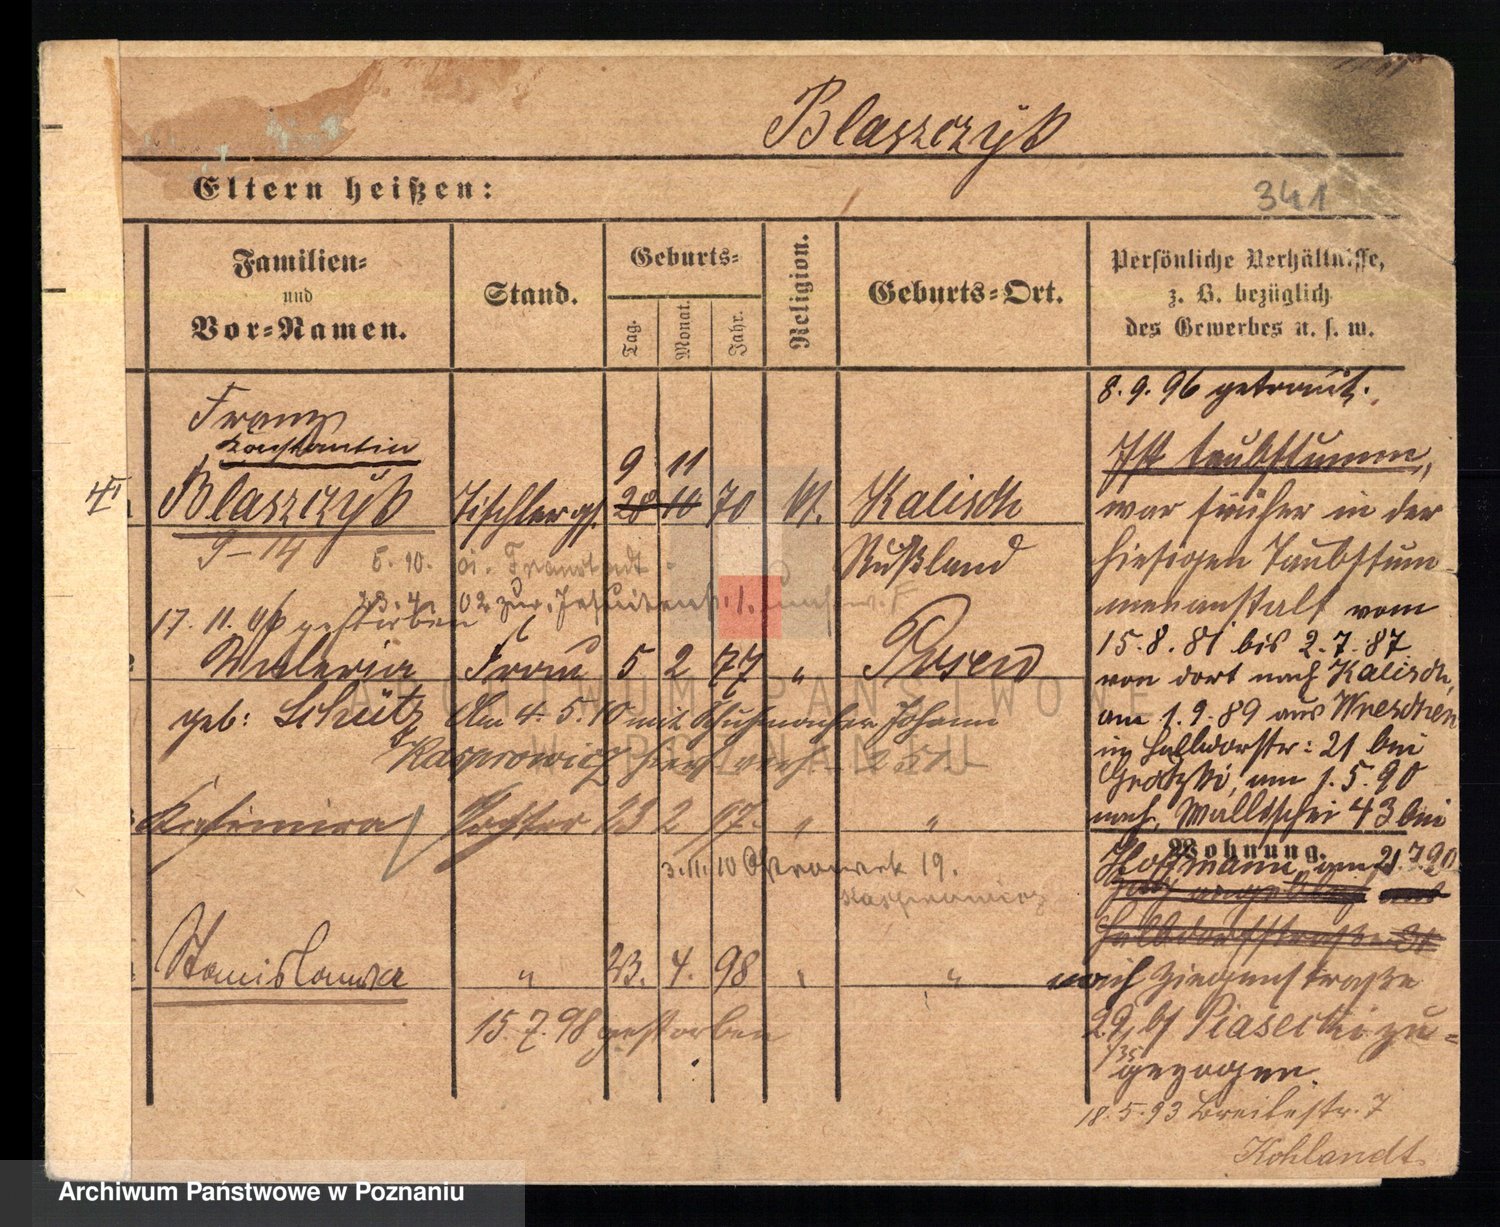 Blaszczyk
Eltern heißen:
341
Familien-
und
Vor-Namen.
Stand.
Geburts-
Tag.
Monat.
Jahr.
Religion.
Geburts-Ort.
Persönliche Verhältnisse,
z. B. bezüglich
des Gewerbes u. s. w.
Franz
Konstantin
9 11
Blaszczyk Tischlerges. 28 10 70 kt. Kalisch
Rußland
9-14
5. 10. 01. Fraustadt
23. 4. 02 zur. Jesuitenstr. 1.
17. 11. 06 gestorben
Waleria Frau 5 2 77 " Posen
geb: Schütz Am 4. 5. 10 mit Schuhmacher Johann
Kasprowicz hier verh.
Kasimira Tochter 23 2 97. " "
3. 11. 10 Ostrowek 19.
Kasprowicz
Stanislawa " 23. 4. 98 " "
15. 7. 98 gestorben
8. 9. 96 getraut.
Ist taubstumm,
war früher in der
hiesigen Taubstum-
menanstalt vom
15. 8. 81 bis 2. 7. 87
von dort nach Kalisch,
am 1. 9. 89 aus Wreschen
in Halbdorfstr: 21 bei
am 1. 5. 90
nach Wallischei 43 bei
Wohnung.
Hoffmann, am 21. 7. 90.
Halbdorfstraße 31
nach Ziegenstraße
29, bei Piasecki zu-
gezogen.
18. 5. 93 Breitestr. 7
Kohlandt
ARCHIWUM PAŃSTWOWE
W POZNANIU
Archiwum Państwowe w Poznaniu